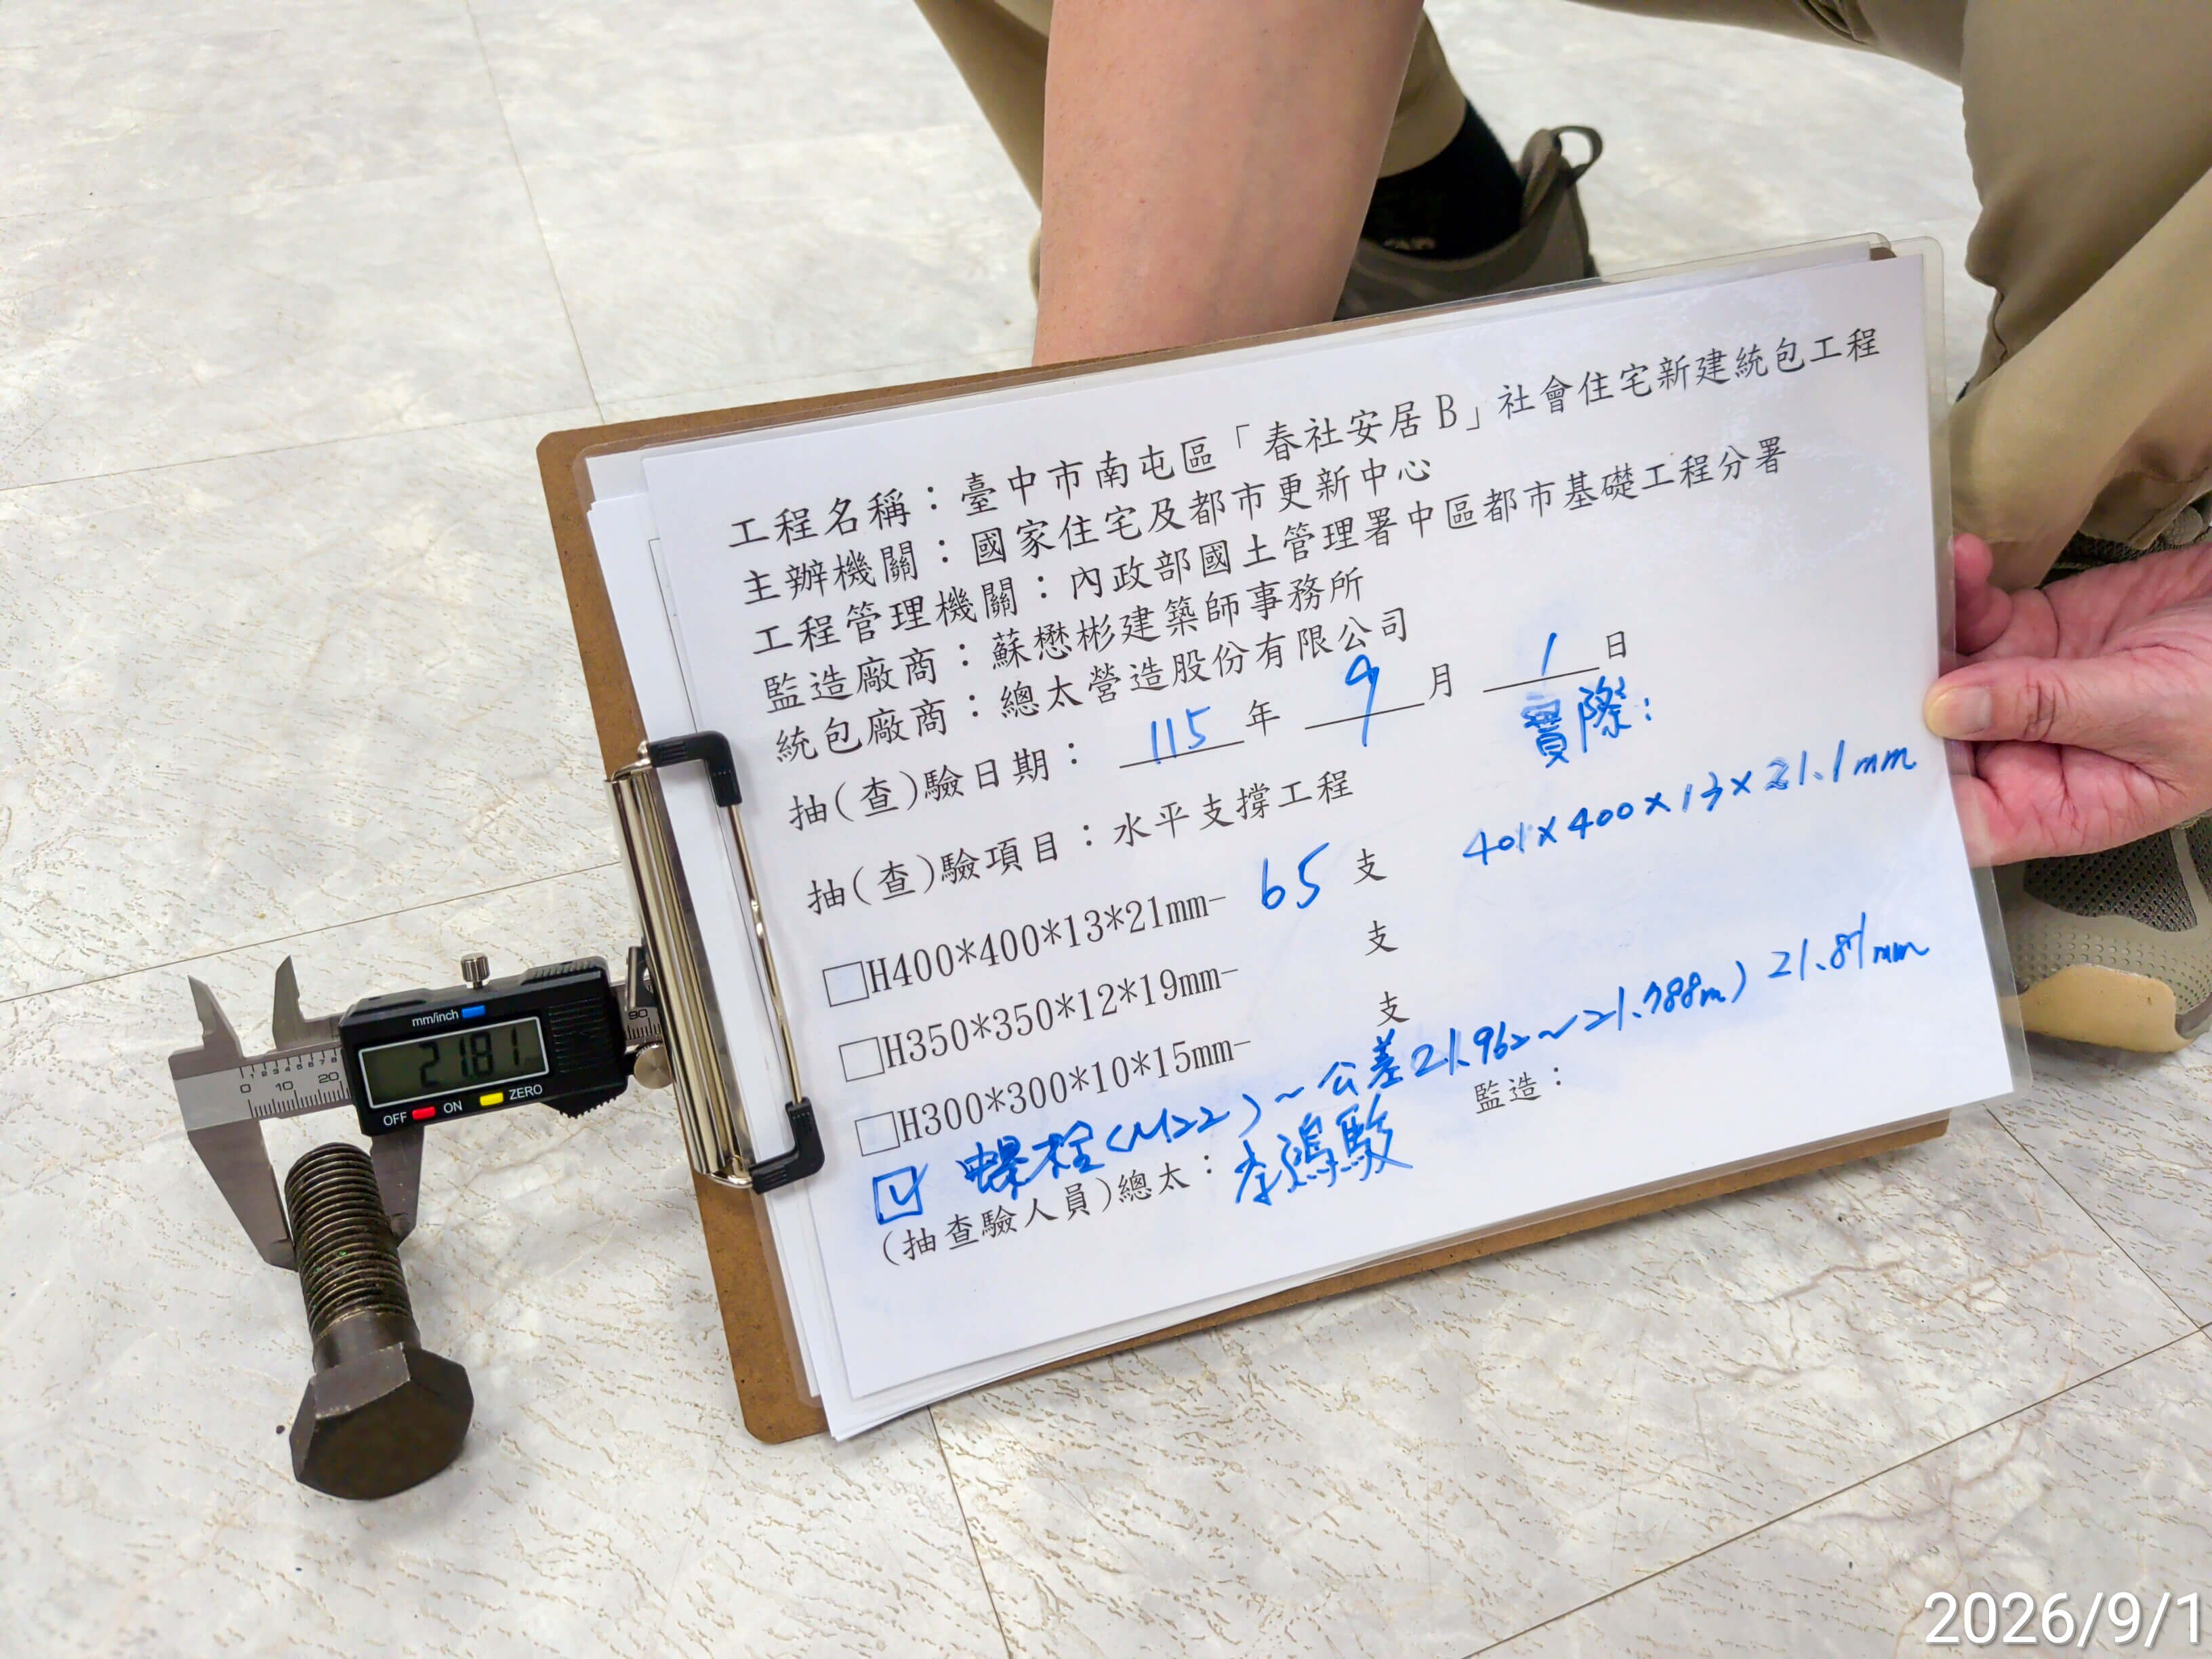 工程名稱：臺中市南屯區「春社安居B」社會住宅新建統包工程
主辦機關：國家住宅及都市更新中心
工程管理機關：內政部國土管理署中區都市基礎工程分署
監造廠商：蘇懋彬建築師事務所
統包廠商：總太營造股份有限公司
抽(查)驗日期：115年 9月 1日
抽(查)驗項目：水平支撐工程
實際：
□H400*400*13*21mm- 65 支 401×400×13×21.1mm
□H350*350*12*19mm- 支
□H300*300*10*15mm- 支
☑ 螺栓(M22)~公差21.962~21.788m) 21.81mm
(抽查驗人員)總太：李鴻駿 監造：
mm/inch
21.81
OFF ON ZERO
0 10 20
90
2026/9/1